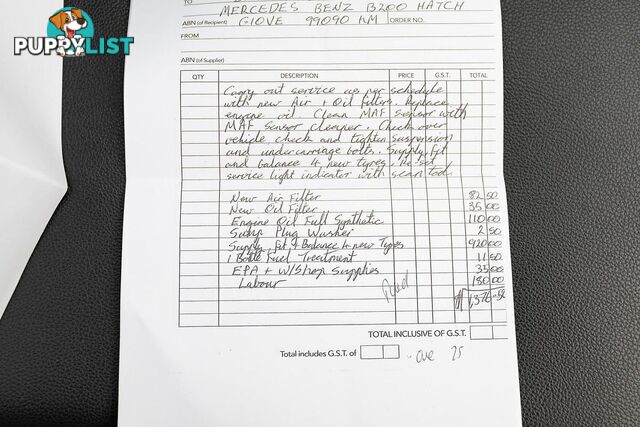 PUPPYLIST
TO
MERCEDES BENZ B200 HATCH
ABN (of Recipient) GIOVE 99090 KM ORDER NO.
FROM
ABN (of Supplier)
QTY DESCRIPTION PRICE G.S.T. TOTAL
Carry out service as per schedule
with new Air + Oil filters. Replace
engine oil. Clean MAF sensor with
MAF sensor cleaner. Check over
vehicle check and tighten suspension
and undercarriage bolts. Supply, fit
and balance 4 new tyres. Re-set
service light indicator with scan tool.
New Air Filter 82 50
New Oil Filter 35 00
Engine Oil Full Synthetic 110 00
Sump Plug Washer 2 50
Supply, fit + Balance 4 new Tyres 920 00
1 Bottle Fuel Treatment 11 50
EPA + W/Shop Supplies 35 00
Labour 180 00
Paid $1,376-50
TOTAL INCLUSIVE OF G.S.T.
Total includes G.S.T. of